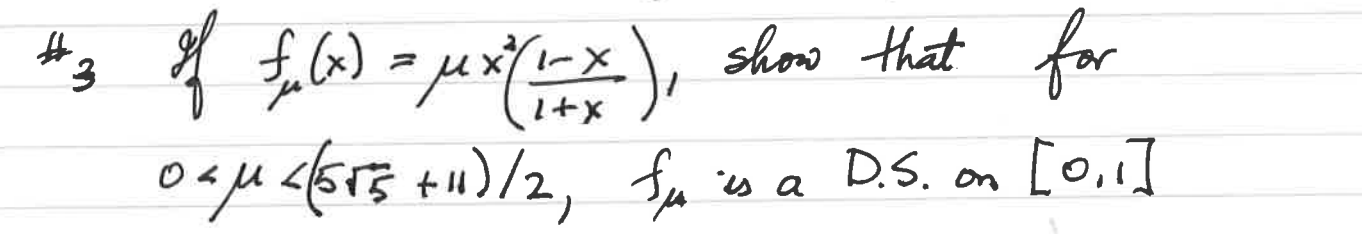 #3 If f_μ(x) = μx²((1-x)/(1+x)), show that for
0<μ<(5√5+11)/2, f_μ is a D.S. on [0,1]